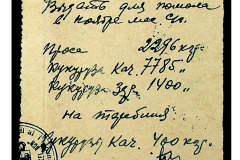 Выдать для помола
в ноябре мес. с/г.
Проса 2296 кгр.
Кукуруза Кач. 7785 "
Кукуруза Зер. 1400 "
на таребиния
Кукуруза Кач. 400 кгр.